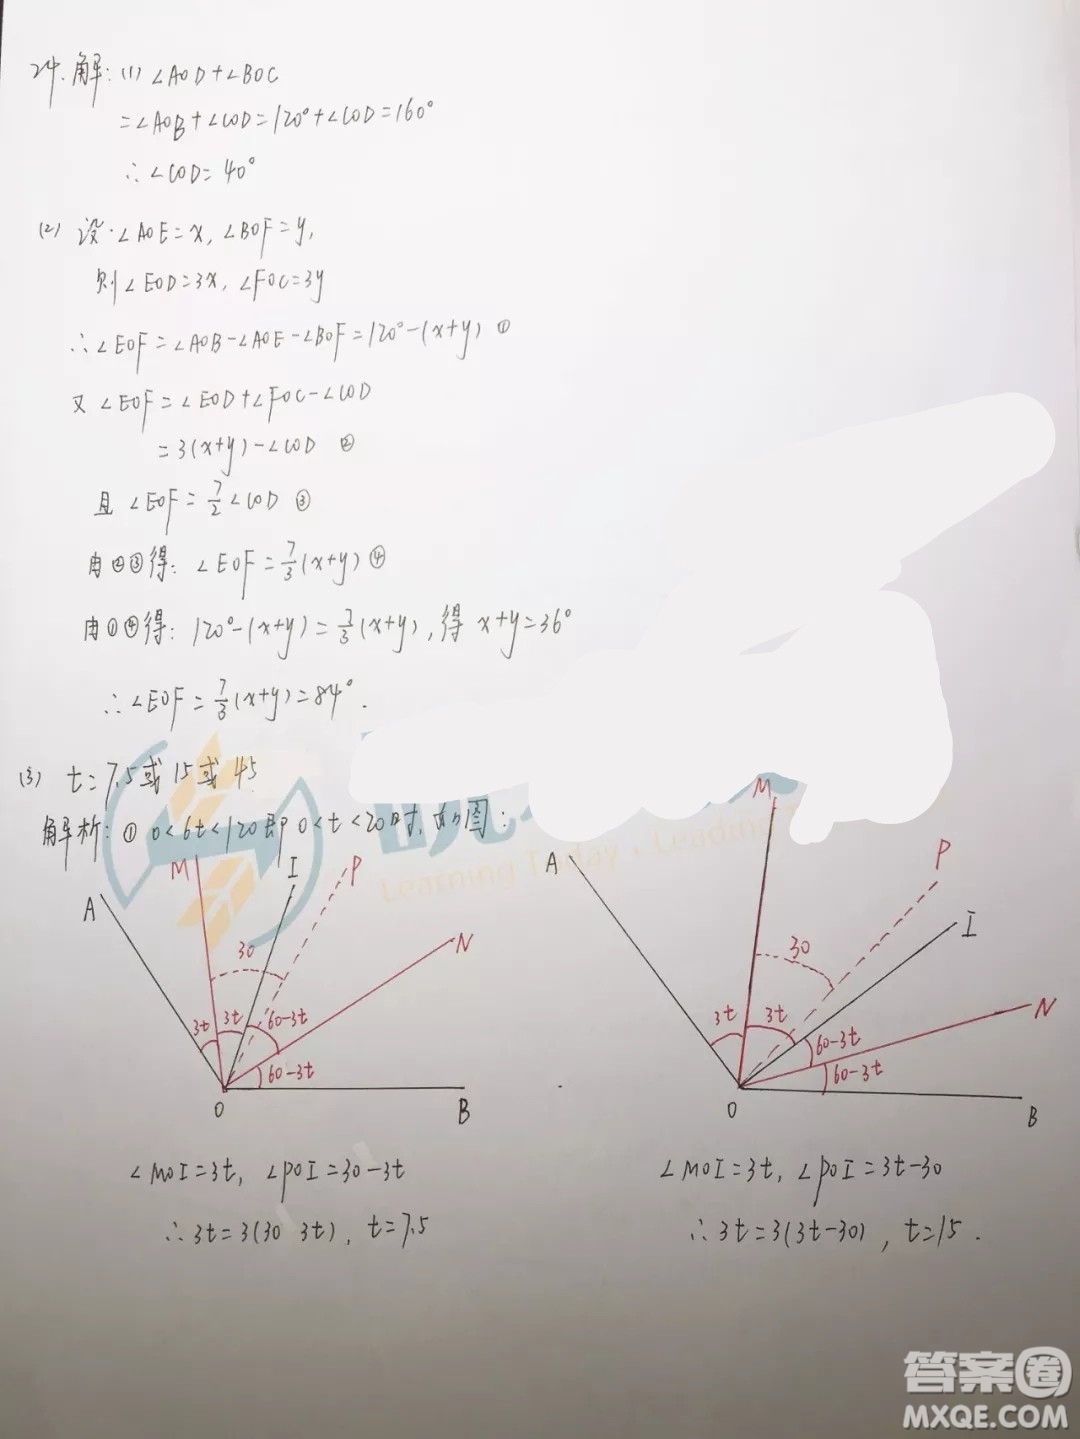 24.解:(1)∠AOD+∠BOC
=∠AOB+∠COD=120°+∠COD=160°
∴∠COD=40°
(2) 设·∠AOE=x,∠BOF=y,
则∠EOD=3x,∠FOC=3y
∴∠EOF=∠AOB-∠AOE-∠BOF=120°-(x+y) ①
又∠EOF=∠EOD+∠FOC-∠COD
=3(x+y)-∠COD ②
且∠EOF=7/2∠COD ③
由②③得:∠EOF=7/3(x+y) ④
由①④得:120°-(x+y)=7/3(x+y),得 x+y=36°
∴∠EOF=7/3(x+y)=84°.
(3) t=7.5或15或45
解析:① 0<6t<120即0<t<20时,如图:
Learning Today , Leading
A M I P N
30
3t 3t 60-3t
60-3t
O B
A M P I N
30
3t 3t 60-3t
60-3t
O B
∠MOI=3t, ∠POI=30-3t
∴3t=3(30 3t), t=7.5
∠MOI=3t, ∠POI=3t-30
∴3t=3(3t-30), t=15.
答案圈
MXQE.COM